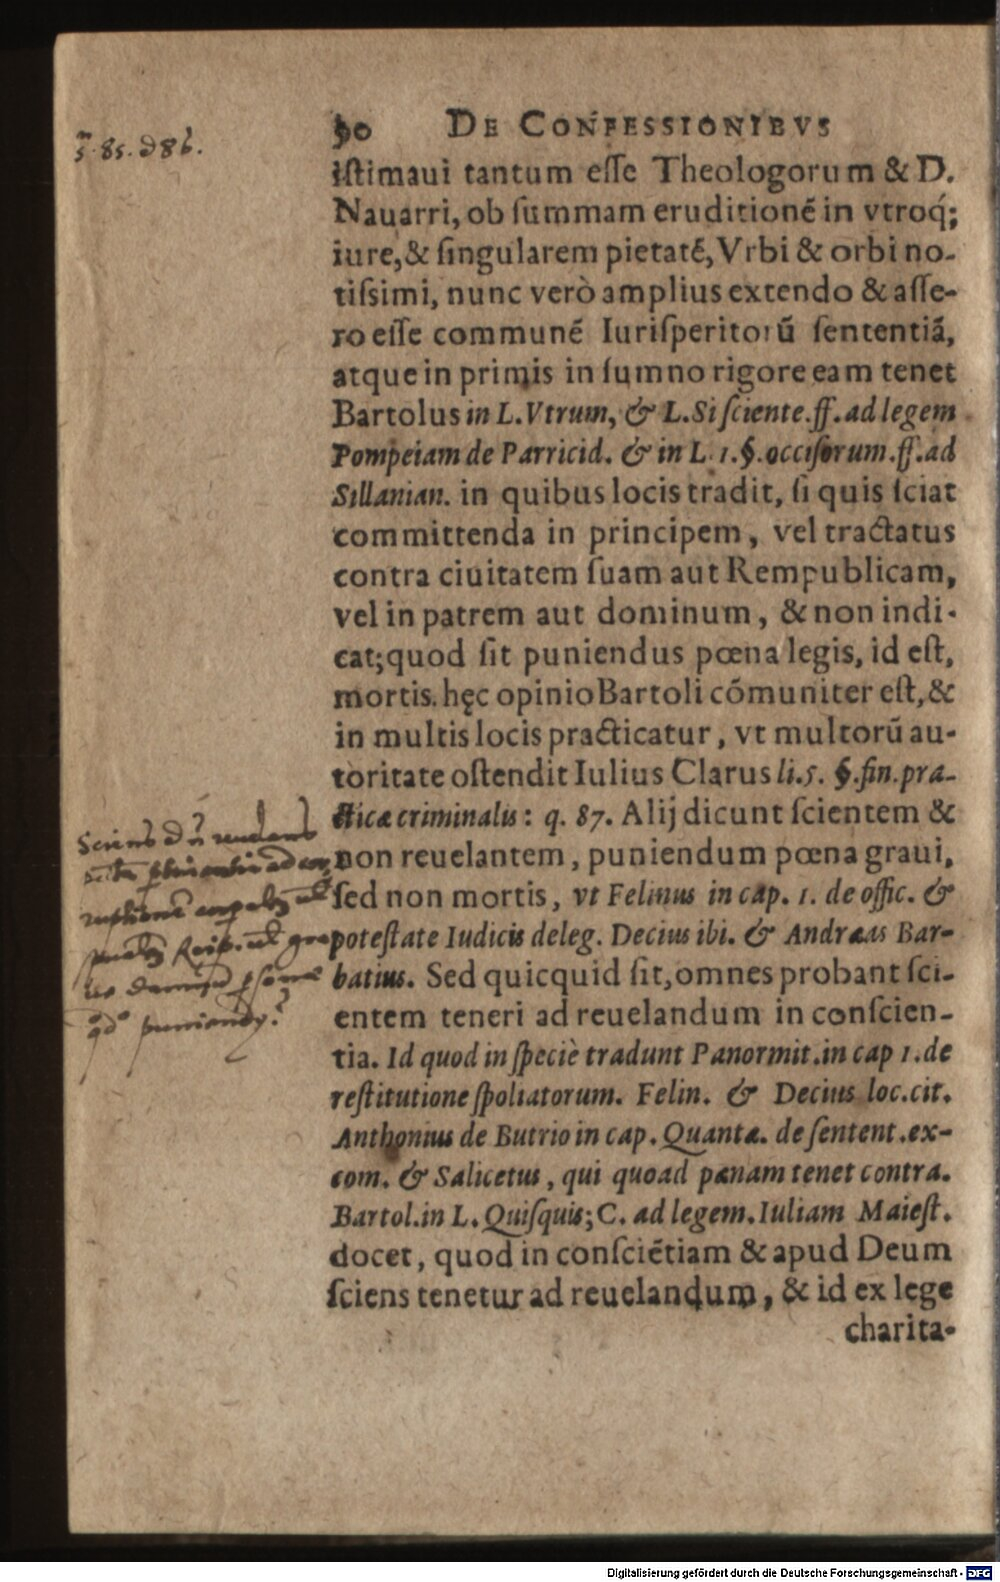 90 DE CONFESSIONIBVS
85. & 86.
istimaui tantum esse Theologorum & D.
Nauarri, ob summam eruditioné in vtroq́;
iure, & singularem pietaté, Vrbi & orbi no-
tissimi, nunc verò amplius extendo & asse-
ro esse communé Iurisperitorũ sententiã,
atque in primis in summo rigore eam tenet
Bartolus in L. Vtrum, & L. Si sciente. ff. ad legem
Pompeiam de Parricid. & in L. 1. §. occisorum. ff. ad
Sillanian. in quibus locis tradit, si quis sciat
committenda in principem, vel tractatus
contra ciuitatem suam aut Rempublicam,
vel in patrem aut dominum, & non indi-
cat; quod sit puniendus pœna legis, id est,
mortis. hęc opinio Bartoli cómuniter est, &
in multis locis practicatur, vt multorũ au-
toritate ostendit Iulius Clarus li. 5. §. fin. pra-
cticæ criminalis: q. 87. Alij dicunt scientem &
non reuelantem, puniendum pœna graui,
sed non mortis, vt Felinus in cap. 1. de offic. &
potestate Iudicis deleg. Decius ibi. & Andræas Bar-
batius. Sed quicquid sit, omnes probant sci-
entem teneri ad reuelandum in conscien-
tia. Id quod in speciè tradunt Panormit. in cap 1. de
restitutione spoliatorum. Felin. & Decius loc. cit.
Anthonius de Butrio in cap. Quantæ. de sentent. ex-
com. & Salicetus, qui quoad pœnam tenet contra.
Bartol. in L. Quisquis; C. ad legem. Iuliam Maiest.
docet, quod in consciétiam & apud Deum
sciens tenetur ad reuelandum, & id ex lege
charita-
Digitalisierung gefördert durch die Deutsche Forschungsgemeinschaft - DFG